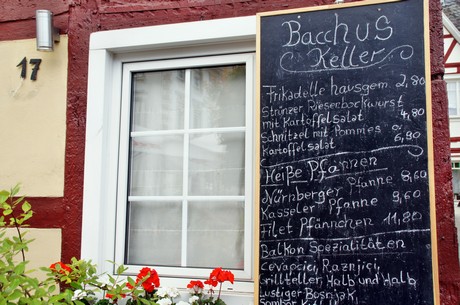 17
Bacchus
Keller
Frikadelle hausgem. 2,80
Strünzer Rieserbockwurst
mit Kartoffelsalat 4,80
Schnitzel mit Pommes o. 6,90
Kartoffelsalat
Heiße Pfannen
Nürnberger Pfanne 8,60
Kasseler Pfanne 9,60
Filet Pfännchen 11,80
Balkon Spezialitäten
Cevapcici, Raznjici,
Grillteller Halb und Halb
Lustiger Bosnjak